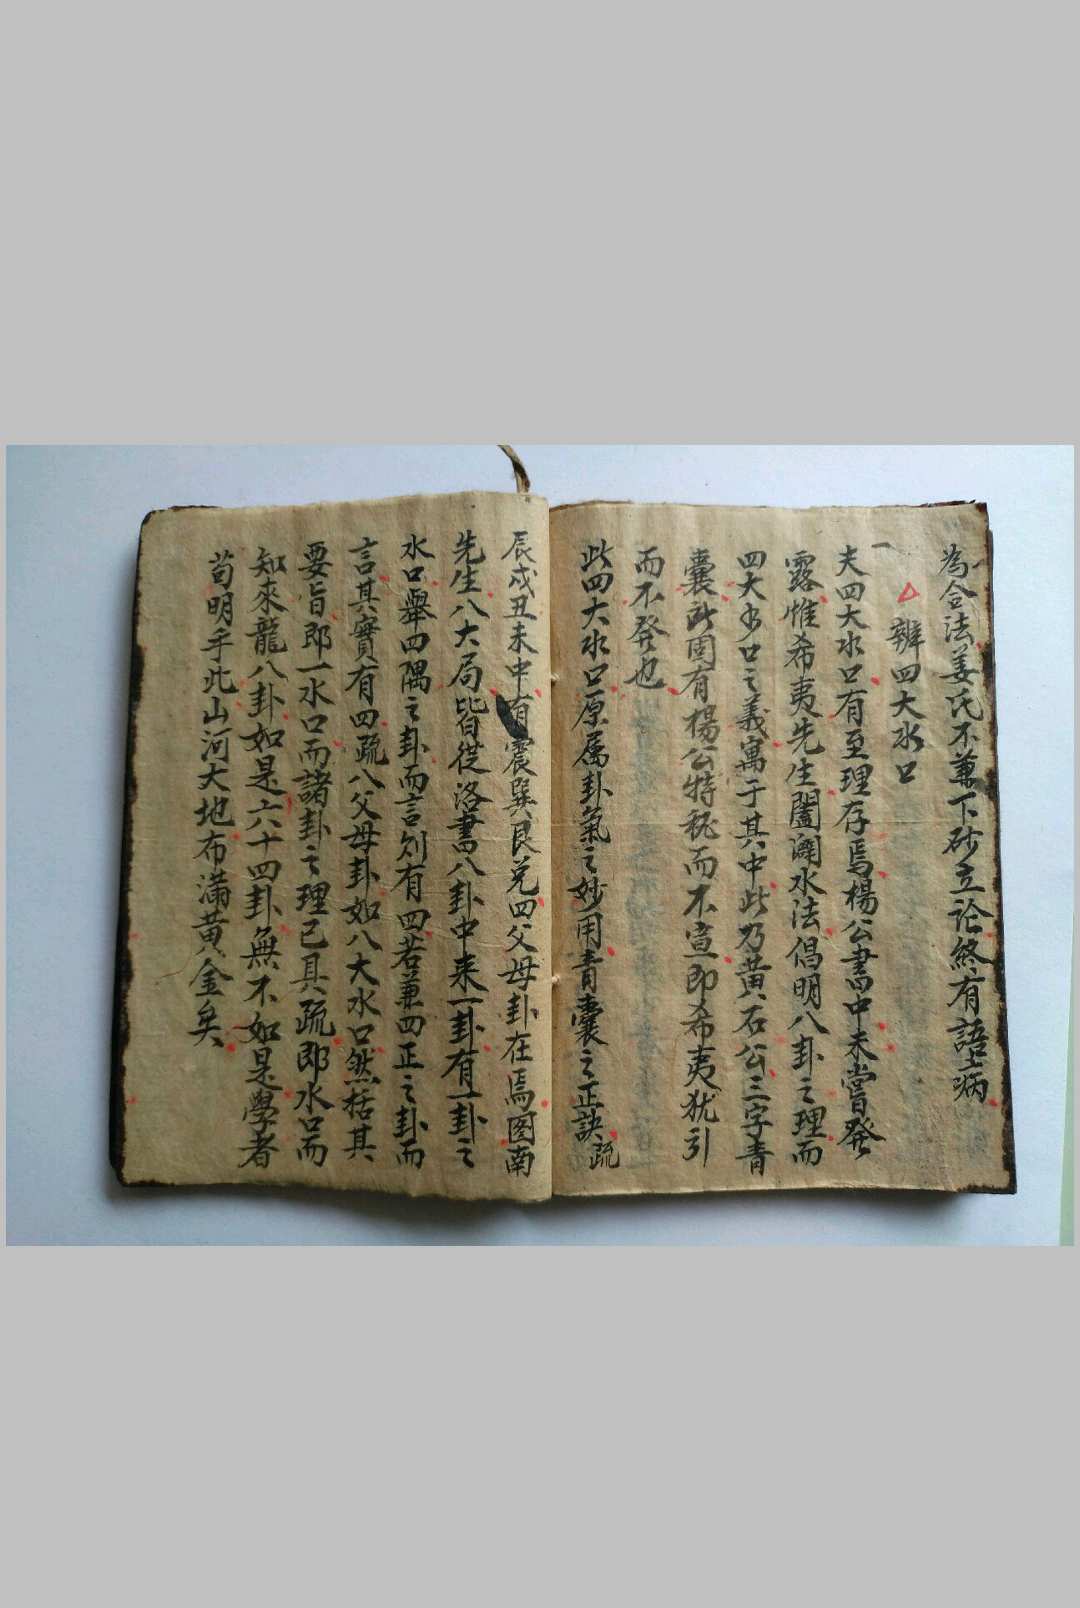 為合法姜氏不兼下砂立论終有語病
辨四大水口
夫四大水口有至理存焉楊公書中未嘗發
露惟希夷先生闔澗水法倡明八卦之理而
四大水口之義寓于其中此乃黄石公三字青
囊所固有楊公特秘而不宣即希夷犹引
而不發也
此四大水口原属卦氣之妙用青囊之正訣疏
辰戌丑未中有震巽艮兑四父母卦在焉图南
先生八大局皆從洛書八卦中来一卦有一卦之
水口舉四隅之卦而言则有四若兼四正之卦而
言其實有四疏八父母卦如八大水口然括其
要旨即一水口而諸卦之理已具疏即水口而
知來龍八卦如是六十四卦無不如是學者
苟明乎此山河大地布滿黄金矣